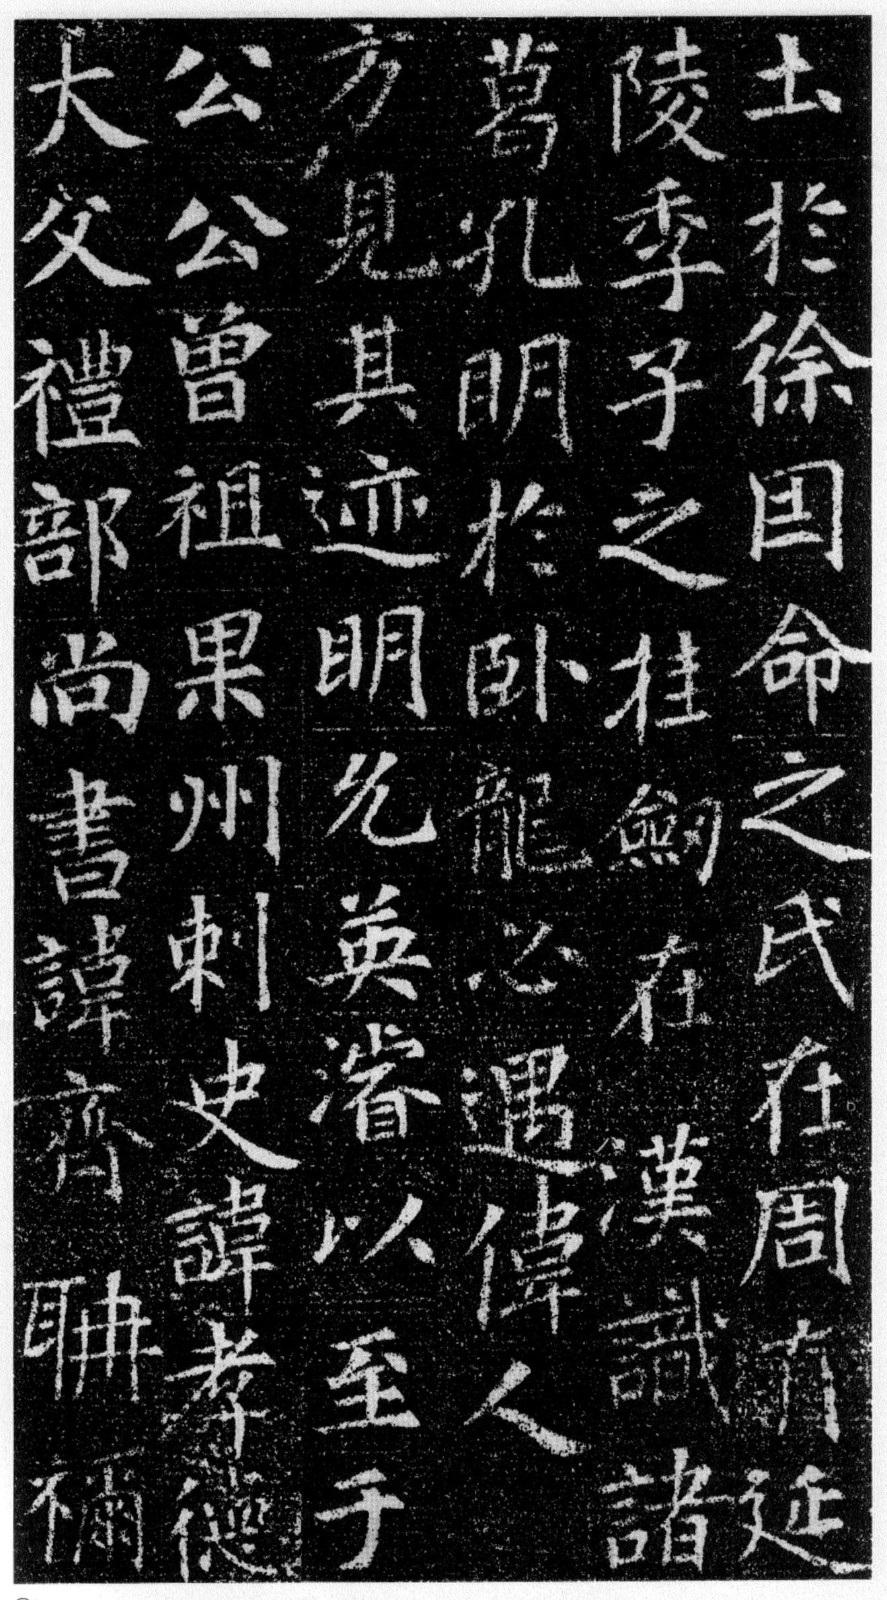 土於徐因命之氏在周有延
陵季子之挂劒在漢識諸
葛孔明於卧龍必遇偉人
方見其迹明允英濬以至于
公公曾祖果州刺史諱孝德
大父禮部尚書諱齊聃禰